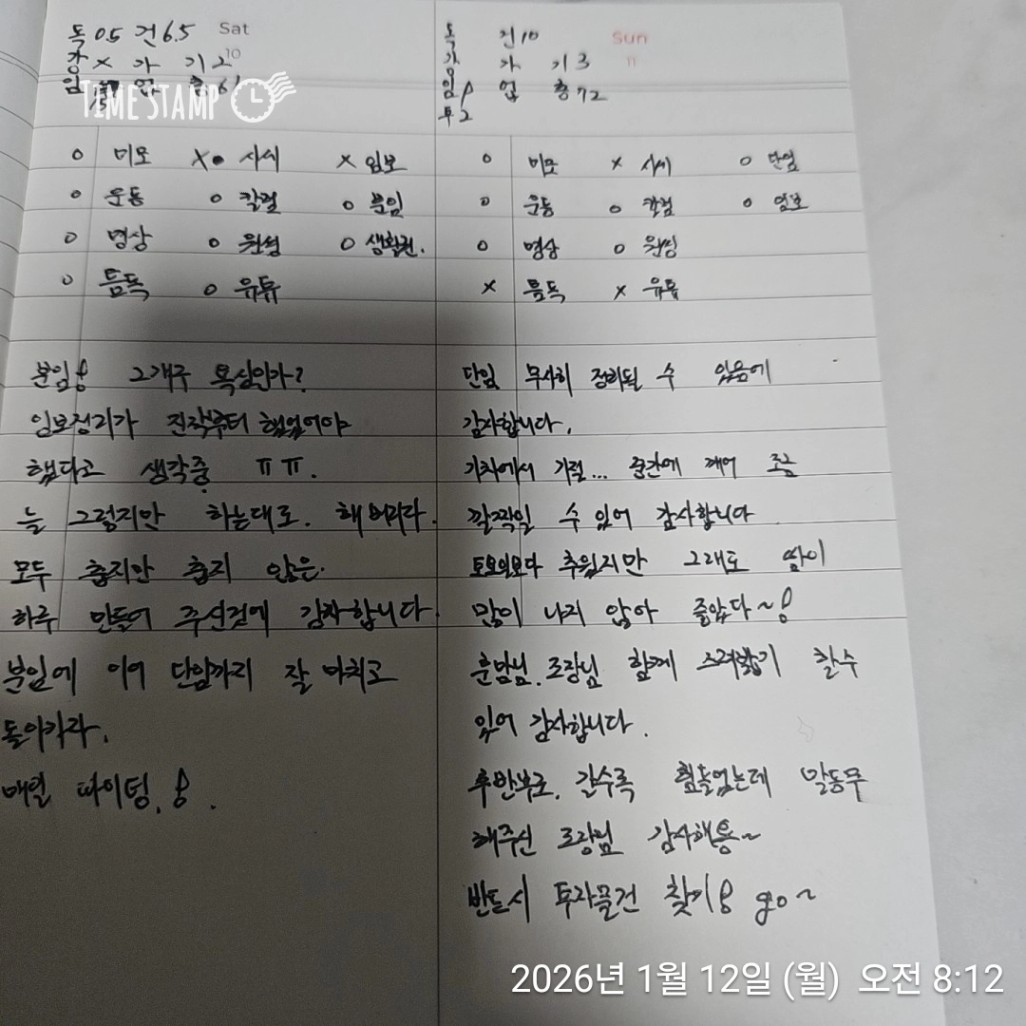 독 0.5 건 6.5 Sat
강 x 가 기 2 10
임 업 총 61
TIME STAMP
o 미모 x 시세 x 임보
o 운동 o 칼럼 o 분임
o 명상 o 원씽 o 생활권.
o 틈독 o 유튜
분임! 그개구 욕심인가?
임보정리가 진작부터 했었어야
했다고 생각중 ㅠㅠ.
늘 그렇지만 하는대로. 해버리다.
모두 춥지만 춥지 않은
하루 만들어 주신것에 감사합니다.
분임에 이어 단임까지 잘 마치고
돌아가자.
매일 파이팅!
독 건 10 Sun
강 가 기 3 11
임 업 총 72
투 2
o 미모 x 시세 o 단임
o 운동 o 칼럼 o 임보
o 명상 o 원씽
x 틈독 x 유튜
단임 무사히 정리될 수 있음에
감사합니다.
기차에서 기절... 중간에 깨어 조금
깔짝일 수 있어 감사합니다
토요일보다 추웠지만 그래도 땀이
많이 나지 않아 좋았다~!
훈맘님, 로장님 함께 할수
있어 감사합니다.
후반부로, 갈수록 힘들었는데 말동무
해주신 로장님 감사해용~
반드시 투자물건 찾기! go~
2026년 1월 12일 (월) 오전 8:12